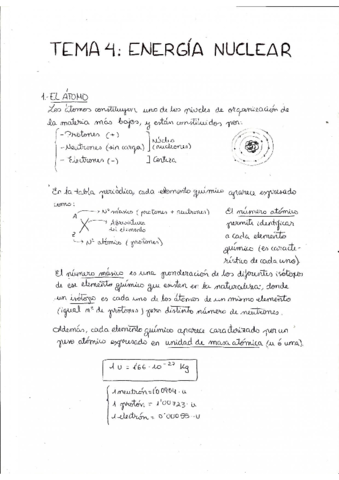 TEMA 4: ENERGÍA NUCLEAR
1-EL ÁTOMO
Los átomos constituyen, uno de los niveles de organización de
la materia más bajos, y están constituidos por:
- Protones (+)
- Neutrones (sin carga)
- Electrones (-)
Núcleo
(nucleones)
Corteza
En la tabla periódica, cada elemento químico aparece expresado
como:
A → Nº másico (protones + neutrones)
X → Abreviatura
del elemento
Z → Nº atómico (protones)
El número atómico
permite identificar
a cada elemento
químico (es caracte-
rístico de cada uno).
El número másico es una ponderación de los diferentes isótopos
de ese elemento químico que existen en la naturaleza, donde
un isótopo es cada uno de los átomos de un mismo elemento
(igual nº de protones) pero distinto número de neutrones.
Además, cada elemento químico aparece caracterizado por un
peso atómico expresado en unidad de masa atómica (u ó uma).
1 u = 1'66·10⁻²⁷ Kg
1 neutrón=1'00904·u
1 protón = 1'00723·u
1 electrón = 0'00055·u